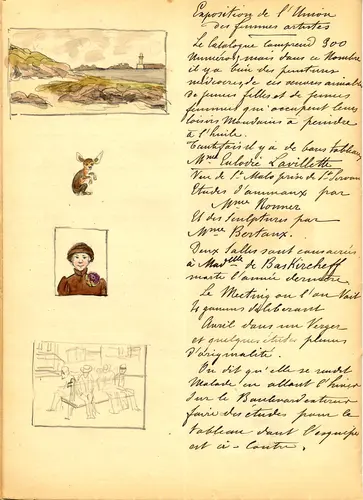 Exposition de l'Union
des femmes artistes
Le Catalogue comprend 300
Numéros, mais dans ce Nombre
il y a bien des peintures
médiocres de ces œuvres aimables
de jeunes filles et de jeunes
femmes qui occupent leurs
loisirs Mondains à peindre
à l'huile.
Toutefois il y a de bons tableaux
Mme Eulodie Lavillette
Vue de St Malo prise de St Servan
Etudes d'animaux par
Mme Ronner
Et des Sculptures par
Mme Bertaux.
Deux Salles sont consacrées
à Madelle de Baskircheff
morte l'année dernière
Le Meeting où l'on Voit
gamins délibérant
Avril dans un Verger
et quelques études pleines
d'originalité.
On dit qu'elle se rendit
Malade en allant l'hiver
sur le Boulevard extérieur
faire des études pour le
tableau dont l'esquisse
est ci-contre.